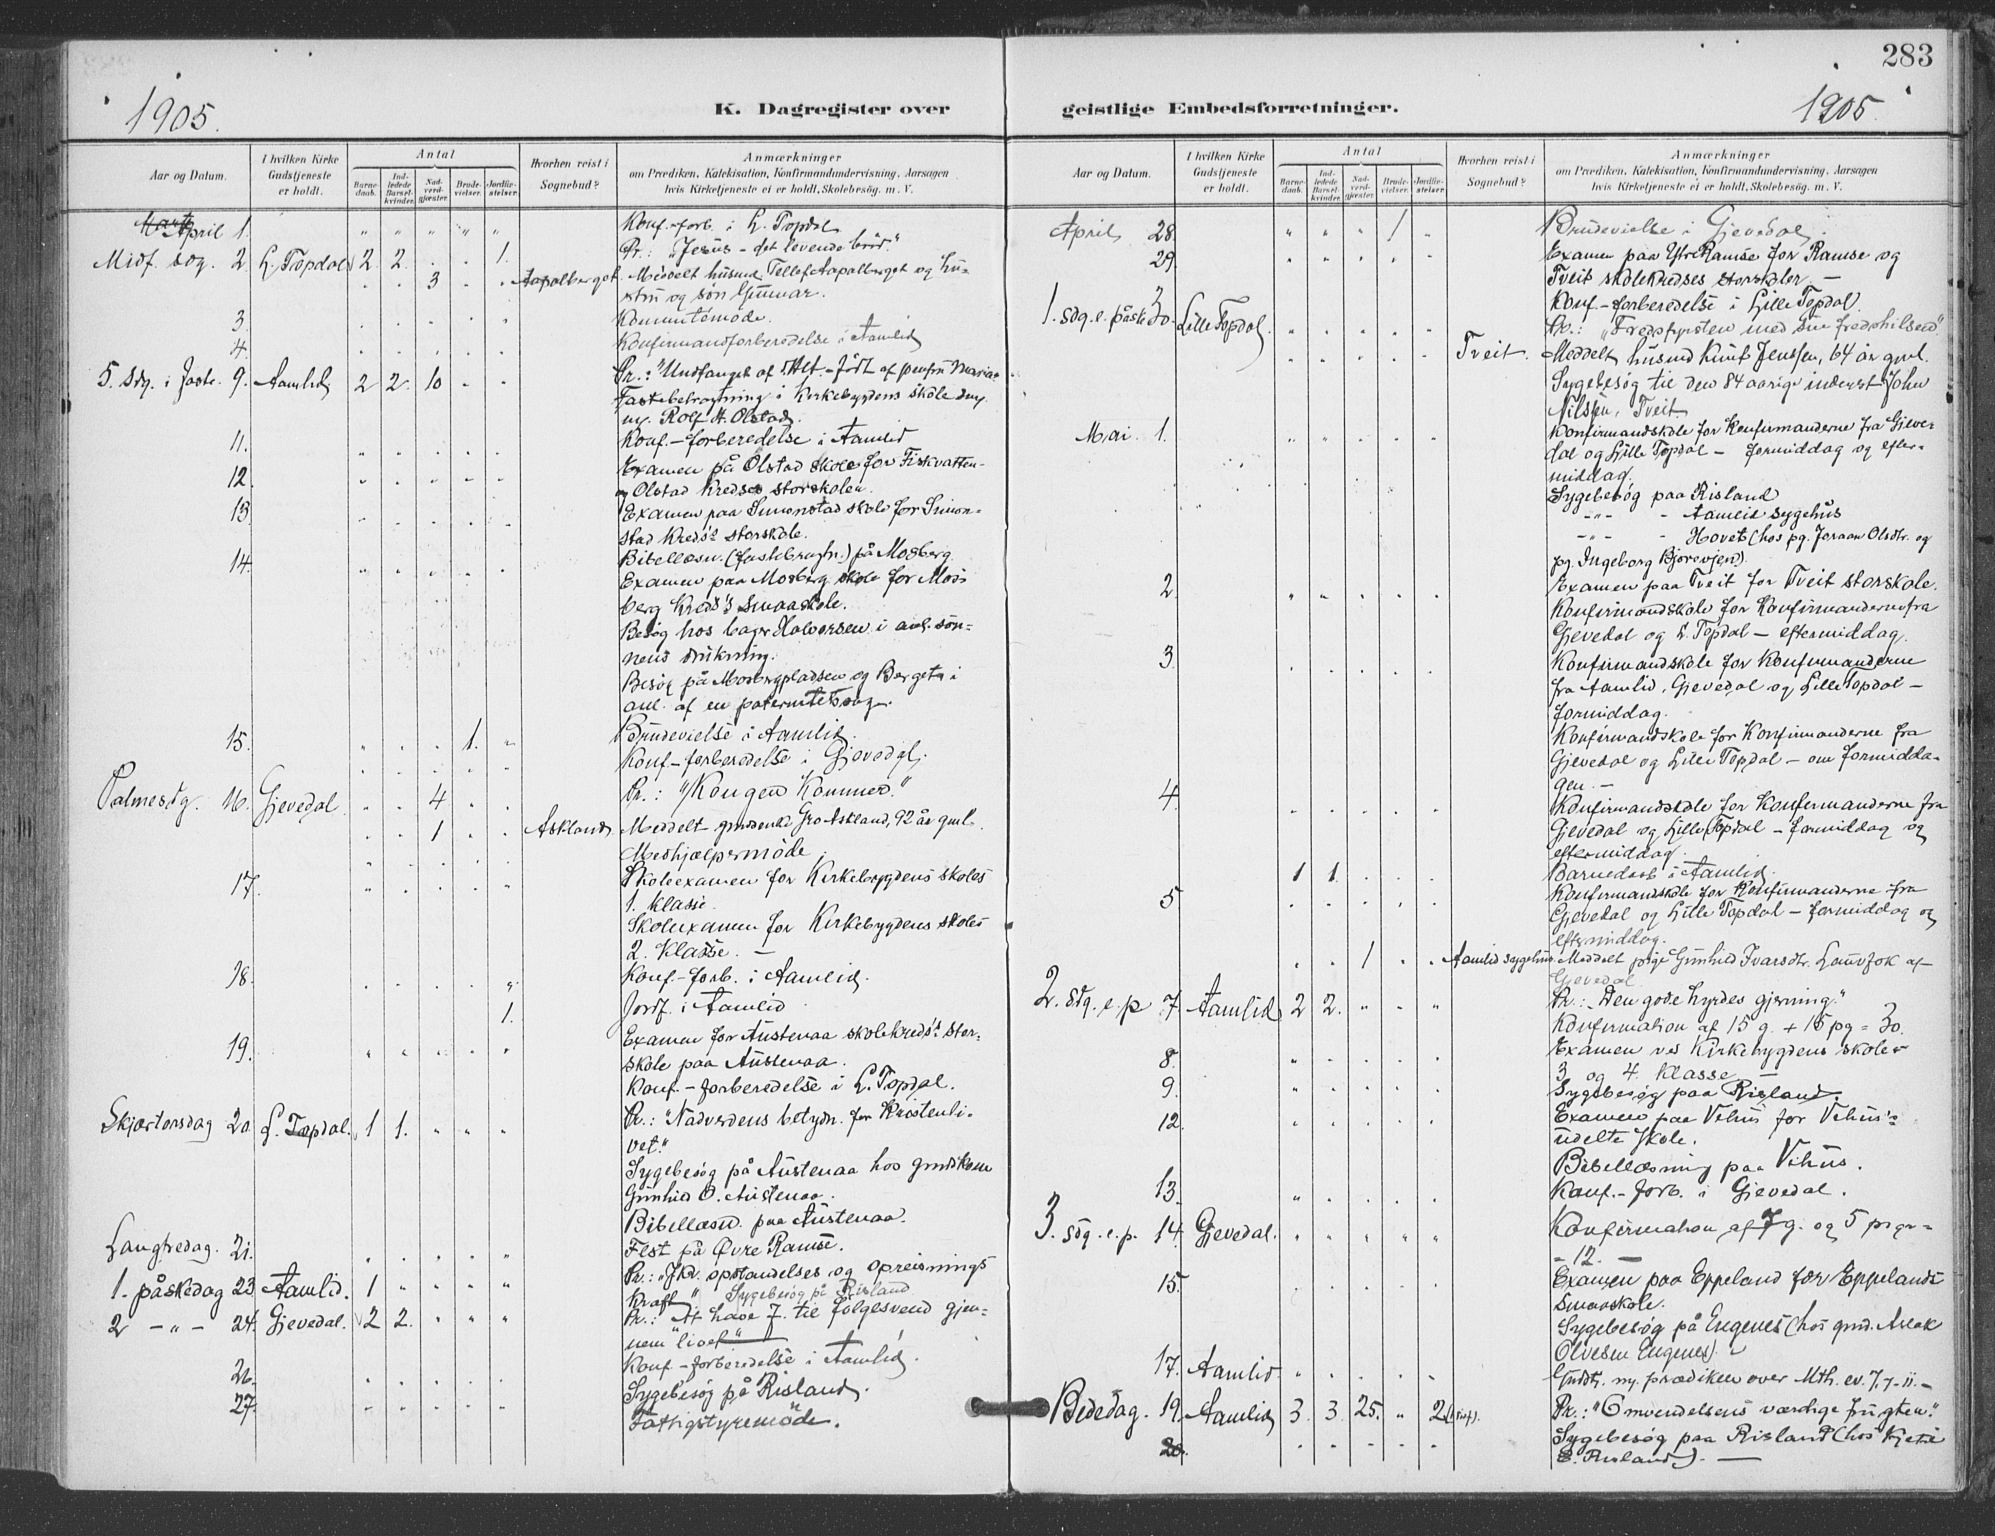 283
1905.
K. Dagregister over
geistlige Embedsforretninger.
1905.
Aar og Datum.
I hvilken Kirke Gudstjeneste er holdt.
Antal
Barnedaab.
Indledede Barselkvinder.
Nadverdgjæster.
Brudevielser.
Jordfæstelser.
Hvorhen reist i Sognebud?
Anmærkninger
om Prædiken, Katekisation, Konfirmandundervisning, Aarsagen
hvis Kirketjeneste ei er holdt, Skolebesøg. m. V.
April 1. " " " " " Konf.-forb. i L. Topdal
Midf. søg. 2 L. Topdal 2 2 . . 1. Pr.: "Jesus - det levende brød."
. . 3 . . Aapalberget. Meddelt husmd. Tellef Aapalberget og hu-
stru og søn Gunnar.
3. Kommunemøde.
4. Konfirmandforberedelse i Aamlid
5. Sdg. i faste. 9. Aamlid 2 2. 10 . . Pr.: "Undfanget af d. Hl. - født af jomfru Maria"
Fastebetragtning i Kirkebygdens skole
Rolf H. Olstad.
11. Konf.-forberedelse i Aamlid
12. Examen på Olstad skole for Fiskvatten-
og Olstad Kredses storskolen.
13 Examen paa Simonstad skole for Simon-
stad Kreds's storskole.
14. Bibellæsn. (fastebragtn.) på Mosberg
Examen paa Mosberg skole for Mos-
berg Kreds's Smaaskole.
Besøg hos bager Halvorsen i anl. søn-
nens drukning.
Besøg på Mosbergpladsen og Berget i
anl. af en paternitetssag.
15. . . . 1. . Brudevielse i Aamlid.
Konf-forberedelse i Gjevedal.
Palmesdg. 16. Gjevedal . . 4 . . Pr.: "Kongen Kommer."
. . 1 . . Askland. Meddelt Gro Askland, 92 år gml.
Medhjælpermøde.
17. Skoleexamen for Kirkebygdens skoles
1. klasse.
Skoleexamen for Kirkebygdens skoles
2. Klasse. -
18. Konf-forb. i Aamlid.
1. Jordf. i Aamlid
19. Examen for Austenaa skolekreds's stor-
skole paa Austenaa.
Konf.-forberedelse i L. Topdal.
Skjærtorsdag 20 L. Topdal. 1 1. " " " Pr.: "Nadverdens betydn. for kristenli-
vet."
Sygebesøg på Austenaa hos
Gunhild O. Austenaa.
Bibellæsn. paa Austenaa.
Langfredag. 21. Fest på Øvre Ramse.
1. påskedag 23 Aamlid. 1 " " " " Pr.: "J. Kr. opstandelses og opreisnings
Kraft" Sygebesøg på Risland
2 - " - 24. Gjevedal. 2 2. " " " Pr.: "At have J. til følgesvend gjen-
nem livet"
26. Konf.-forberedelse i Aamlid.
27. Sygebesøg på Risland.
Fattigstyremøde.
Aar og Datum.
I hvilken Kirke Gudstjeneste er holdt.
Antal
Barnedaab.
Indledede Barselkvinder.
Nadverdgjæster.
Brudevielser.
Jordfæstelser.
Hvorhen reist i Sognebud?
Anmærkninger
om Prædiken, Katekisation, Konfirmandundervisning, Aarsagen
hvis Kirketjeneste ei er holdt, Skolebesøg. m. V.
April 28. " " " 1 . Brudevielse i Gjevedal.
29. Examen paa Ytre Ramse for Ramse og
Tveit skolekredses storskoler -
Konf-forberedelse i Lille Topdal
1. sdg. e. påske 30. Lille Topdal. Pr.: "Fredsfyrsten med sin fredshilsen"
Tveit. Meddelt husmd Knut Jenssen, 64 år gml.
Sygebesøg til den 84 aarige inderst John
Nilssen, Tveit.
Mai. 1. Konfirmandskole for konfirmanderne fra Gjeve-
dal og Lille Topdal - formiddag og efter-
middag.
Sygebesøg paa Risland
-"- - Aamlid sygehus
-"- - Hovet (hos pg. Joraan Olsdtr. og
pg. Ingeborg Bjorevjen).
2. Examen paa Tveit for Tveit storskole.
Konfirmandskole for Konfirmanderne fra
Gjevedal og L. Topdal - eftermiddag.
3. Konfirmandskole for Konfirmanderne
fra Aamlid, Gjevedal og Lille Topdal -
formiddag.
Konfirmandskole for Konfirmanderne fra
Gjevedal og Lille Topdal - om formidda-
gen. -
4. Konfirmandskole for Konfirmanderne fra
Gjevedal og Lille Topdal - formiddag og
eftermiddag.
1 1. . . . Barnedaab i Aamlid.
5 Konfirmandskole for Konfirmanderne fra
Gjevedal og Lille Topdal - formiddag og
eftermiddag.
. . 1 . . Aamlid sygehus. Meddelt pige Gunhild Ivarsdtr. Lauvfok af
Gjevedal
2. sdg. e. p 7. Aamlid 2 2. " " " Pr.: "Den gode hyrdes gjerning."
Konfirmation af 15 g. + 15 pg = 30.
8. Examen ved Kirkebygdens skoles
3 og 4. klasse
9. Sygebesøg paa Risland.
12. Examen paa Vehus for Vehus's
udelte skole.
Bibellæsning paa Vehus.
13. Konf.-forb. i Gjevedal.
3. sdg. e. p. 14. Gjevedal. " " " " " Konfirmation af 7 g. og 5 piger =
= 12. -
15. Examen paa Eppeland for Eppelands
Smaaskole.
Sygebesøg på Engenes (hos gmd. Aslak
Olvesen Engenes). -
17. Aamlid. Gudstj. m. prædiken over Mth. ev. 7, 7-11. -
Bededag. 19. Aamlid 3. 3. 25. " 2 Pr.: "Omvendelsens værdige frugter."
20. Sygebesøg paa Risland (hos
E. Risland). -